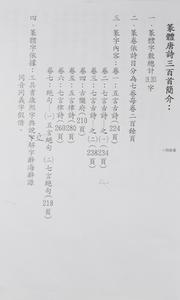 篆體唐詩三百首簡介：
一．篆體字數總計
二．篆卷依詩目分為七卷每卷二百餘頁
三．篆字內容：卷一：五言古詩(224頁)
卷二：七言古詩—之(一)(238頁)
卷三：七言古詩—之(二)(234頁)
卷四：古樂府(210頁)
卷五：五言律詩(280頁)
卷六：七言律詩(260頁)
卷七：絕句：(一)五言絕句(二)七言絕句(218頁)
四．篆體字依據：工具書為
同音同義字假借。